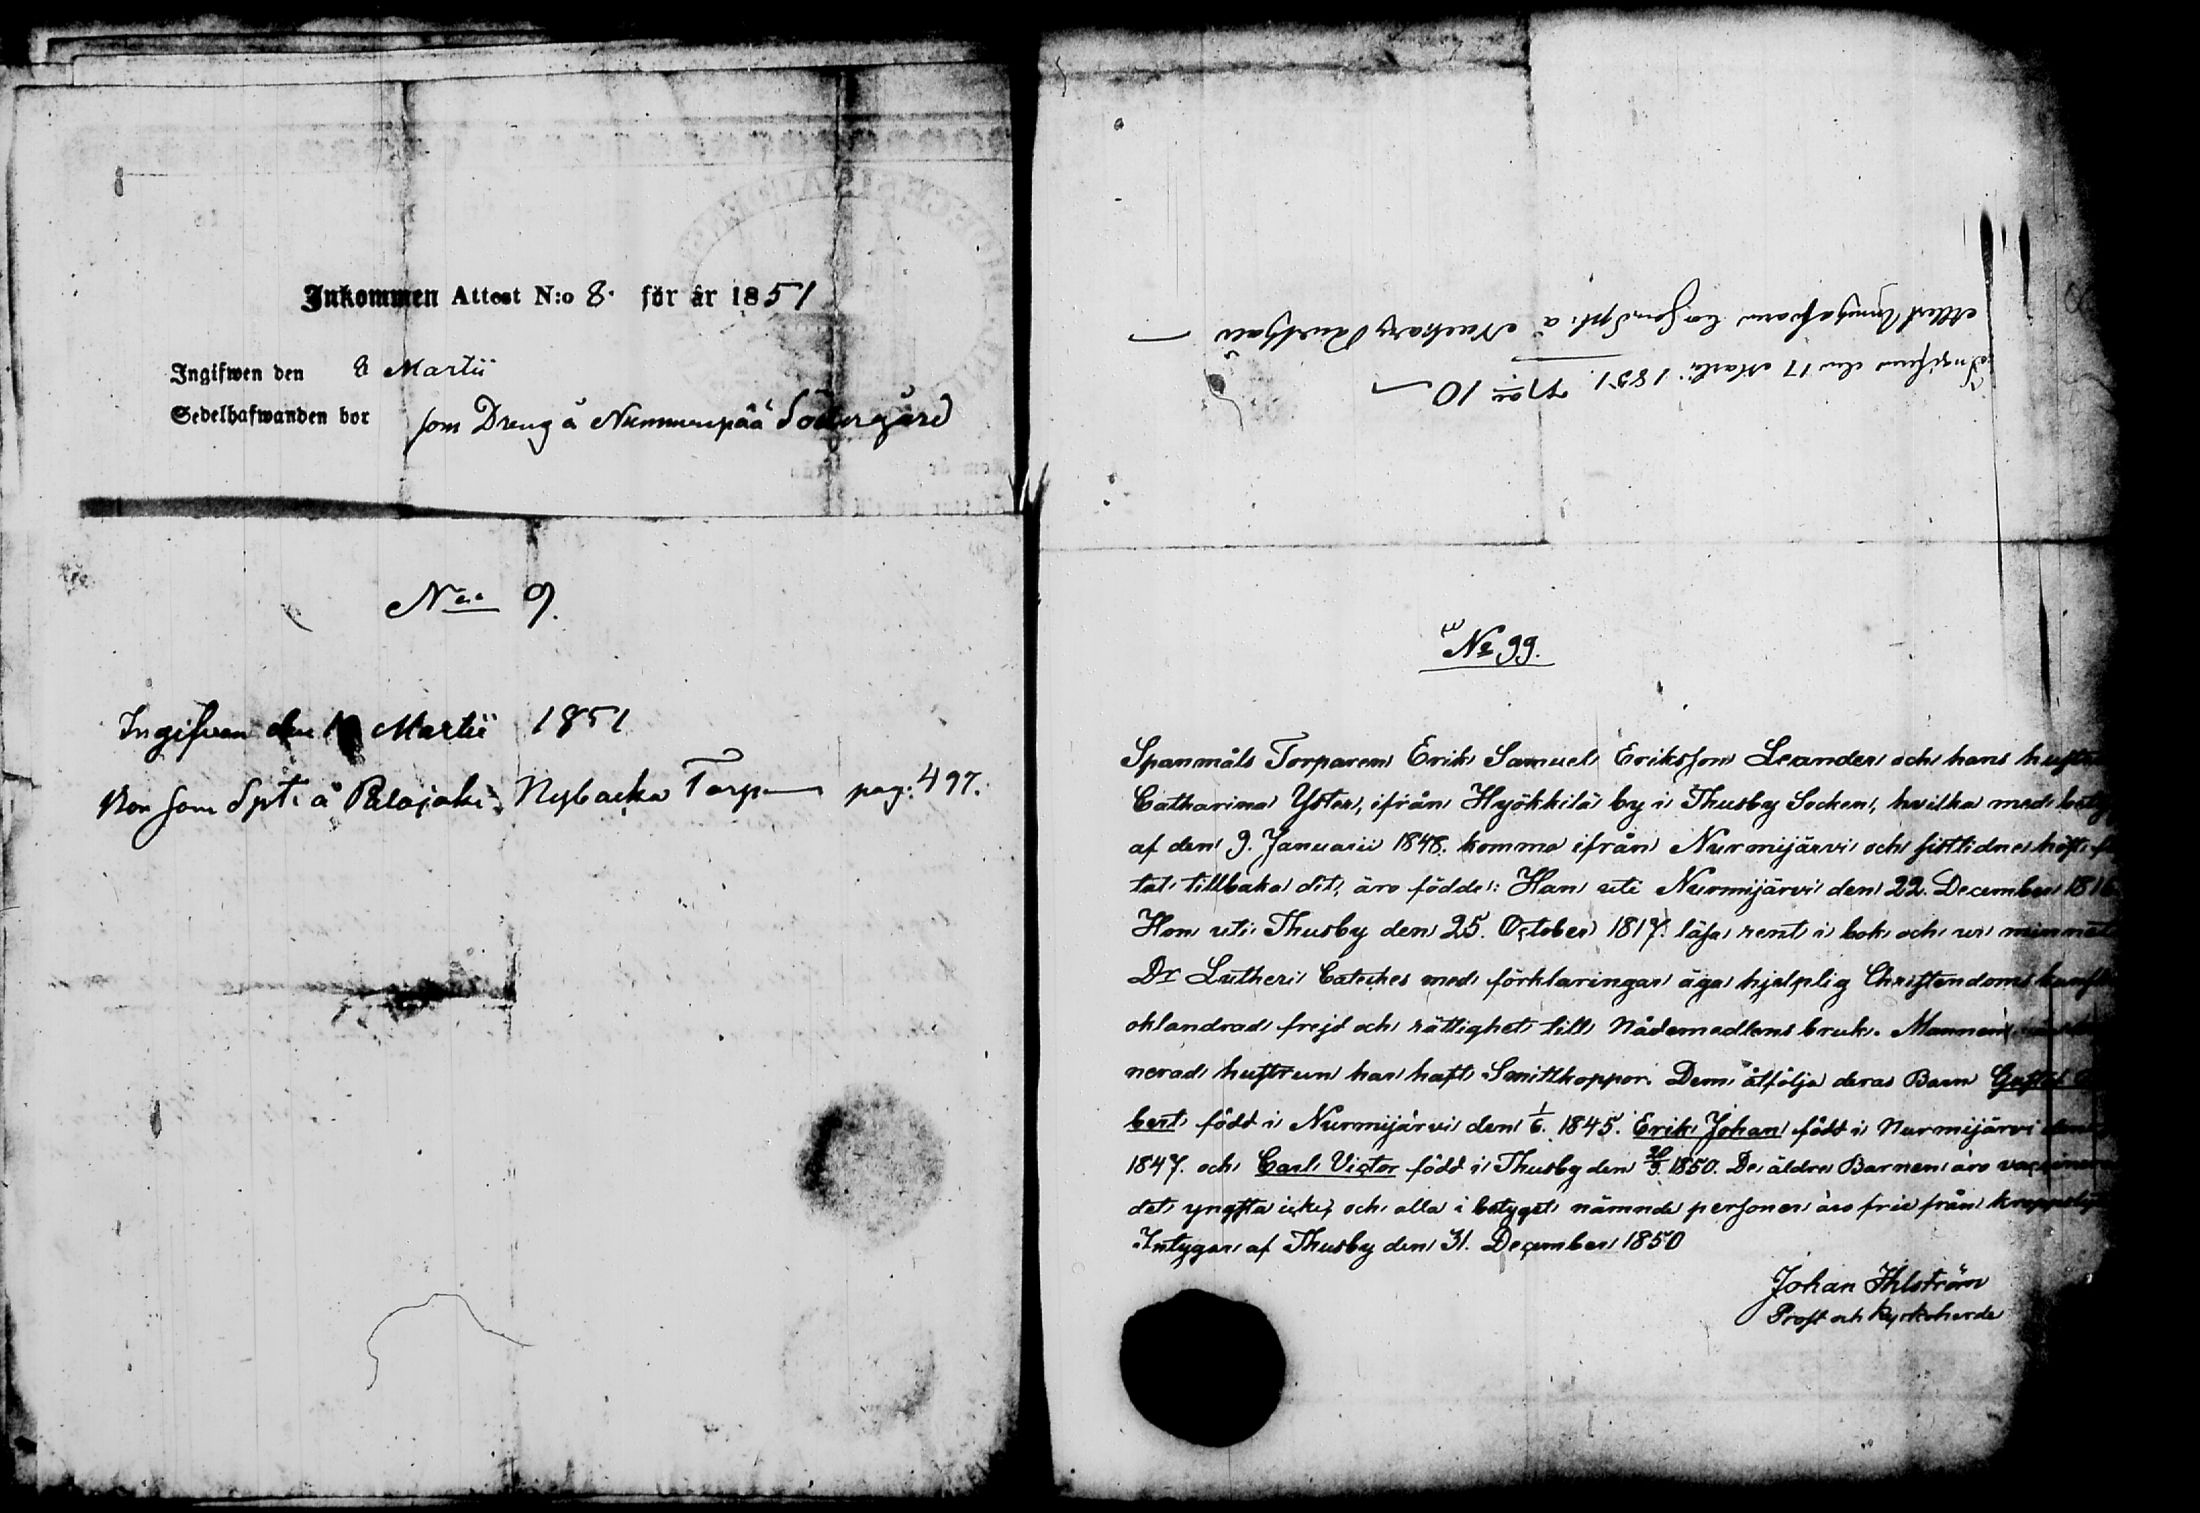 Inkommen Attest N:o 8. för år 1851
Ingifwen den 8 Martii
Sedelhafwanden bor som Dreng å Nummenpää Södergård
N:o 9.
Ingifven den Martii 1851
Bor som Spt. å Palojoki Nybacka Torp pag. 497.
Ingifven den 17 Martii 1851. N:o 10
No 99.
Spanmåls Torparen Erik Samuel Eriksson Leander och hans hustru
Catharina Yster, ifrån Hyökkilä by i Thusby Socken, hvilka med betyg
af den 9. Januarii 1848. kommo ifrån Nurmijärvi och sistlidne höst
tat tillbaka dit, äro födde: Han uti Nurmijärvi den 22. December 1816
Hon uti Thusby den 25. October 1817. läsa rent i bok och ur minnet
Dr Lutheri Cateches med förklaringar äga hjelplig Christendoms
oklandrad frejd och rättighet till Nådemedlens bruk. Mannen
nerad hustrun har haft Smittkoppor. Dem åtfölja deras Barn Gustaf
bert född i Nurmijärvi den 1/6. 1845. Erik Johan född i Nurmijärvi den
1847. och Carl Victor född i Thusby den 1850. De äldre Barnen äro
det yngsta icke, och alla i betyget nämnde personer äro frie från
Intygar af Thusby den 31. December 1850
Johan Ihlström
Prost och Kyrkoherde